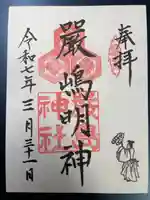 奉拝
嚴嶋明神
嚴嶋神社
令和七年三月三十一日